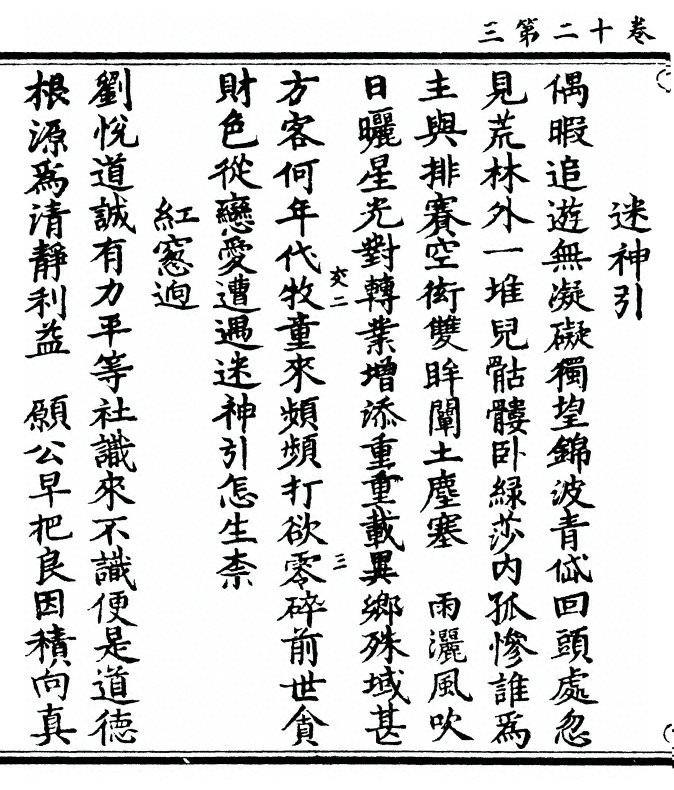 卷十二第三
迷神引
偶暇追遊無凝礙獨望錦波青岱回頭處忽
見荒林外一堆兒骷髏卧綠莎内孤慘誰爲
主與排賽空衒雙眸闡土塵塞　雨灑風吹
日曬星光對轉業增添重重載異鄉殊域甚
方客何年代牧童來頻頻打欲零碎前世貪
交二
三
財色從戀愛遭遇迷神引怎生柰
紅窓迥
劉悦道誠有力平等社識來不識便是道德
根源爲清靜利益　願公早把良因積向真